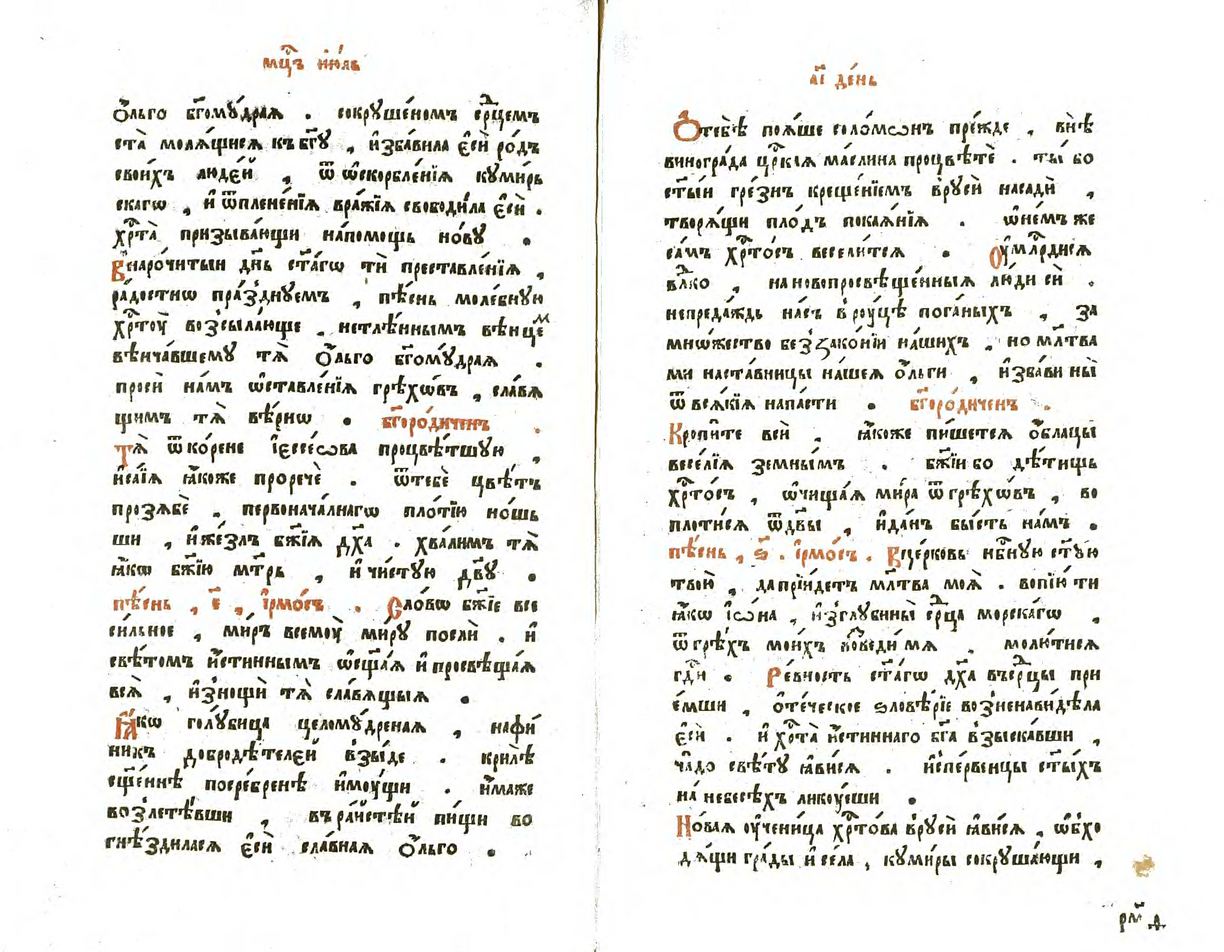 мц҃ъ ію́ль
Ѻ҆́льго бг҃ому́драѧ . сокруше́номъ ср҃дцемъ
ста̀ молѧ́щиисѧ къ бг҃ꙋ , и҆збавила є҆сѝ ро́дъ
свои́хъ люде́й , ѿ ѡ҆скорбле́нїѧ кумирь
скагѡ , и҆ ѿплене́нїѧ вра́жїѧ свободи́ла є҆сѝ .
хр҃та̀ призыва́ющи на́помощь но́вꙋ .
Внаро́читыи дн҃ь ст҃а́гѡ тѝ преставле́нїѧ ,
ра́достнѡ пра́зднуемъ , пѣ́снь моле́бную
хр҃тоу̀ возсыла́юще . нетлѣ́ннымъ вѣнце́м
вѣнча́вшему тѧ̀ Ѻ҆́льго бг҃ому́драѧ .
просѝ на́мъ ѡ҆ставле́нїѧ грѣхѡ́въ , сла́вѧ
щимъ тѧ̀ вѣ́рнѡ . бг҃оро́диченъ .
Тѧ̀ ѿ ко́рене і҆ессе́ѡва процвѣ́тшую ,
и҆са́їѧ ꙗ҆́коже проречѐ . ѿтебѐ цвѣ́тъ
прозѧбѐ , первонача́лнагѡ пло́тїю но́шь
ши , и҆ же́злъ бж҃їѧ дх҃а . хва́лимъ тѧ̀
ꙗ҆́кѡ бж҃їю мт҃рь , и҆ чи́стую дв҃ꙋ .
пѣ́снь , є҃ , і҆рмо́съ . Сло́вѡ бж҃їе все
си́льное , ми́ръ всемоу̀ ми́ру послѝ . и҆
свѣ́томъ и҆́стиннымъ ѡ҆сща́ѧ и҆ просвѣща́ѧ
всѧ̀ , и҆знощѝ тѧ̀ сла́вѧщыѧ .
Ꙗ҆́кѡ голу́бица целому́дренаѧ , нафи́
никъ добродѣ́телей взы́де . крилѣ̀
сще́ннѣ посре́бренѣ и҆моу́щи . и҆́маже
возлетѣ́вши , въ ра́йстѣй пи́щи во
гнѣ́здиласѧ є҆сѝ сла́внаѧ Ѻ҆́льго .
а҃і де́нь
Ѻ҆тебѣ̀ поѧ́ше соломѡ́нъ пре́жде , внѣ̀
виногра́да цр҃кїѧ ма́слина процвѣтѐ . ты́ бо
ст҃ы́и гре́знъ креще́нїемъ в руси̂ насадѝ ,
творѧ́щи пло́дъ покаѧ́нїѧ . ѡ҆не́мъ же
са́мъ хр҃то́съ весели́тсѧ . Оу҆мл҃рдисѧ
влⷣко , на новопросвѣще́нныѧ лю́ди сѝ .
непреда́ждь на́съ в роу́цѣ пога́ныхъ , за
мнѡ́жество беззако́нїи на́шихъ . но мл҃тва
ми наста́вницы на́шеѧ Ѻ҆́льги , и҆зба́ви ны̀
ѿ всѧ́кїѧ напасти . бг҃оро́диченъ .
Кропи́те всѝ , ꙗ҆́коже пи́шетсѧ ѻ҆́блацы
весе́лїѧ земны́мъ . бж҃їи бо дѣ́тищь
хр҃то́съ , ѡ҆чища́ѧ ми́ра ѿ грѣхѡ́въ , во
пло́тисѧ ѿ дв҃ы , и҆ да́нъ бы́сть на́мъ .
пѣ́снь , ѕ҃ . і҆рмо́съ . Вце́рковь нб҃ную ст҃у́ю
твою̀ , да прїи́детъ мл҃тва моѧ̀ . вопїю́ ти
ꙗ҆́кѡ і҆ѡ́на , и҆зглубины̀ ср҃дца морска́гѡ ,
ѿ грѣ́хъ мои́хъ возведи́ мѧ . молю́тисѧ
гдⷭи . Ре́вность ст҃а́гѡ дх҃а въ ср҃дцы при
е́мши , ѻ҆те́ческое ѕловѣ́рїе возненави́дѣла
є҆сѝ . и҆ хр҃та̀ и҆́стиннаго бг҃а взыска́вши ,
ча́до свѣ́ту ꙗ҆ви́сѧ . и҆с пе́рвенцы ст҃ы́хъ
на́ небесѣ́хъ лику́еши .
Но́ваѧ оу҆чени́ца хр҃то́ва в руси̂ ꙗ҆ви́сѧ , ѡ҆бхо
дѧ́щи гра́ды и҆ се́ла , куми́ры сокруша́ющи ,